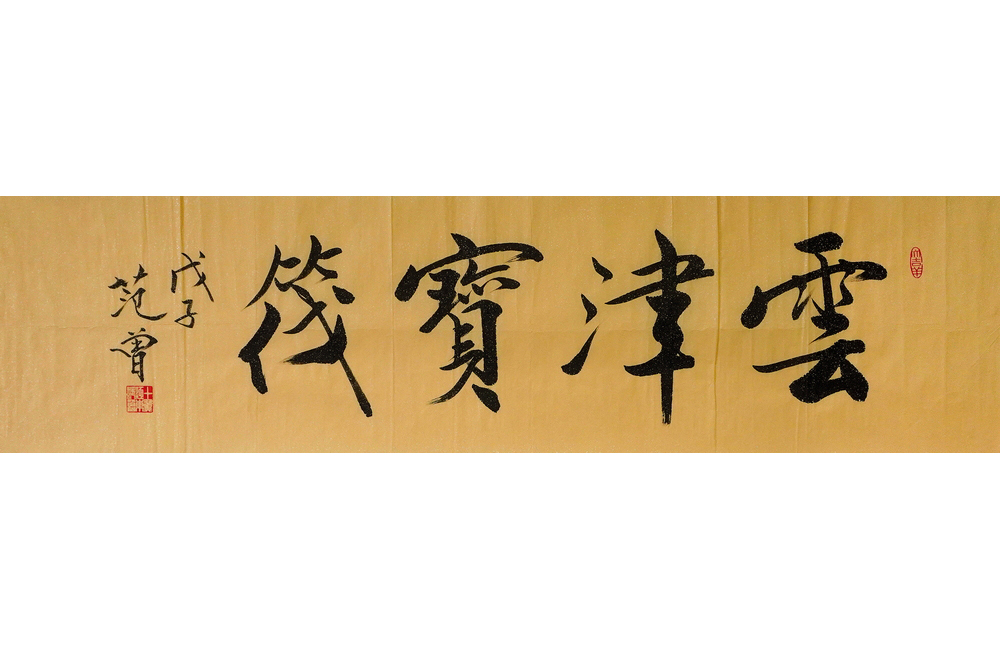 雲津寶筏
戊子
范曾